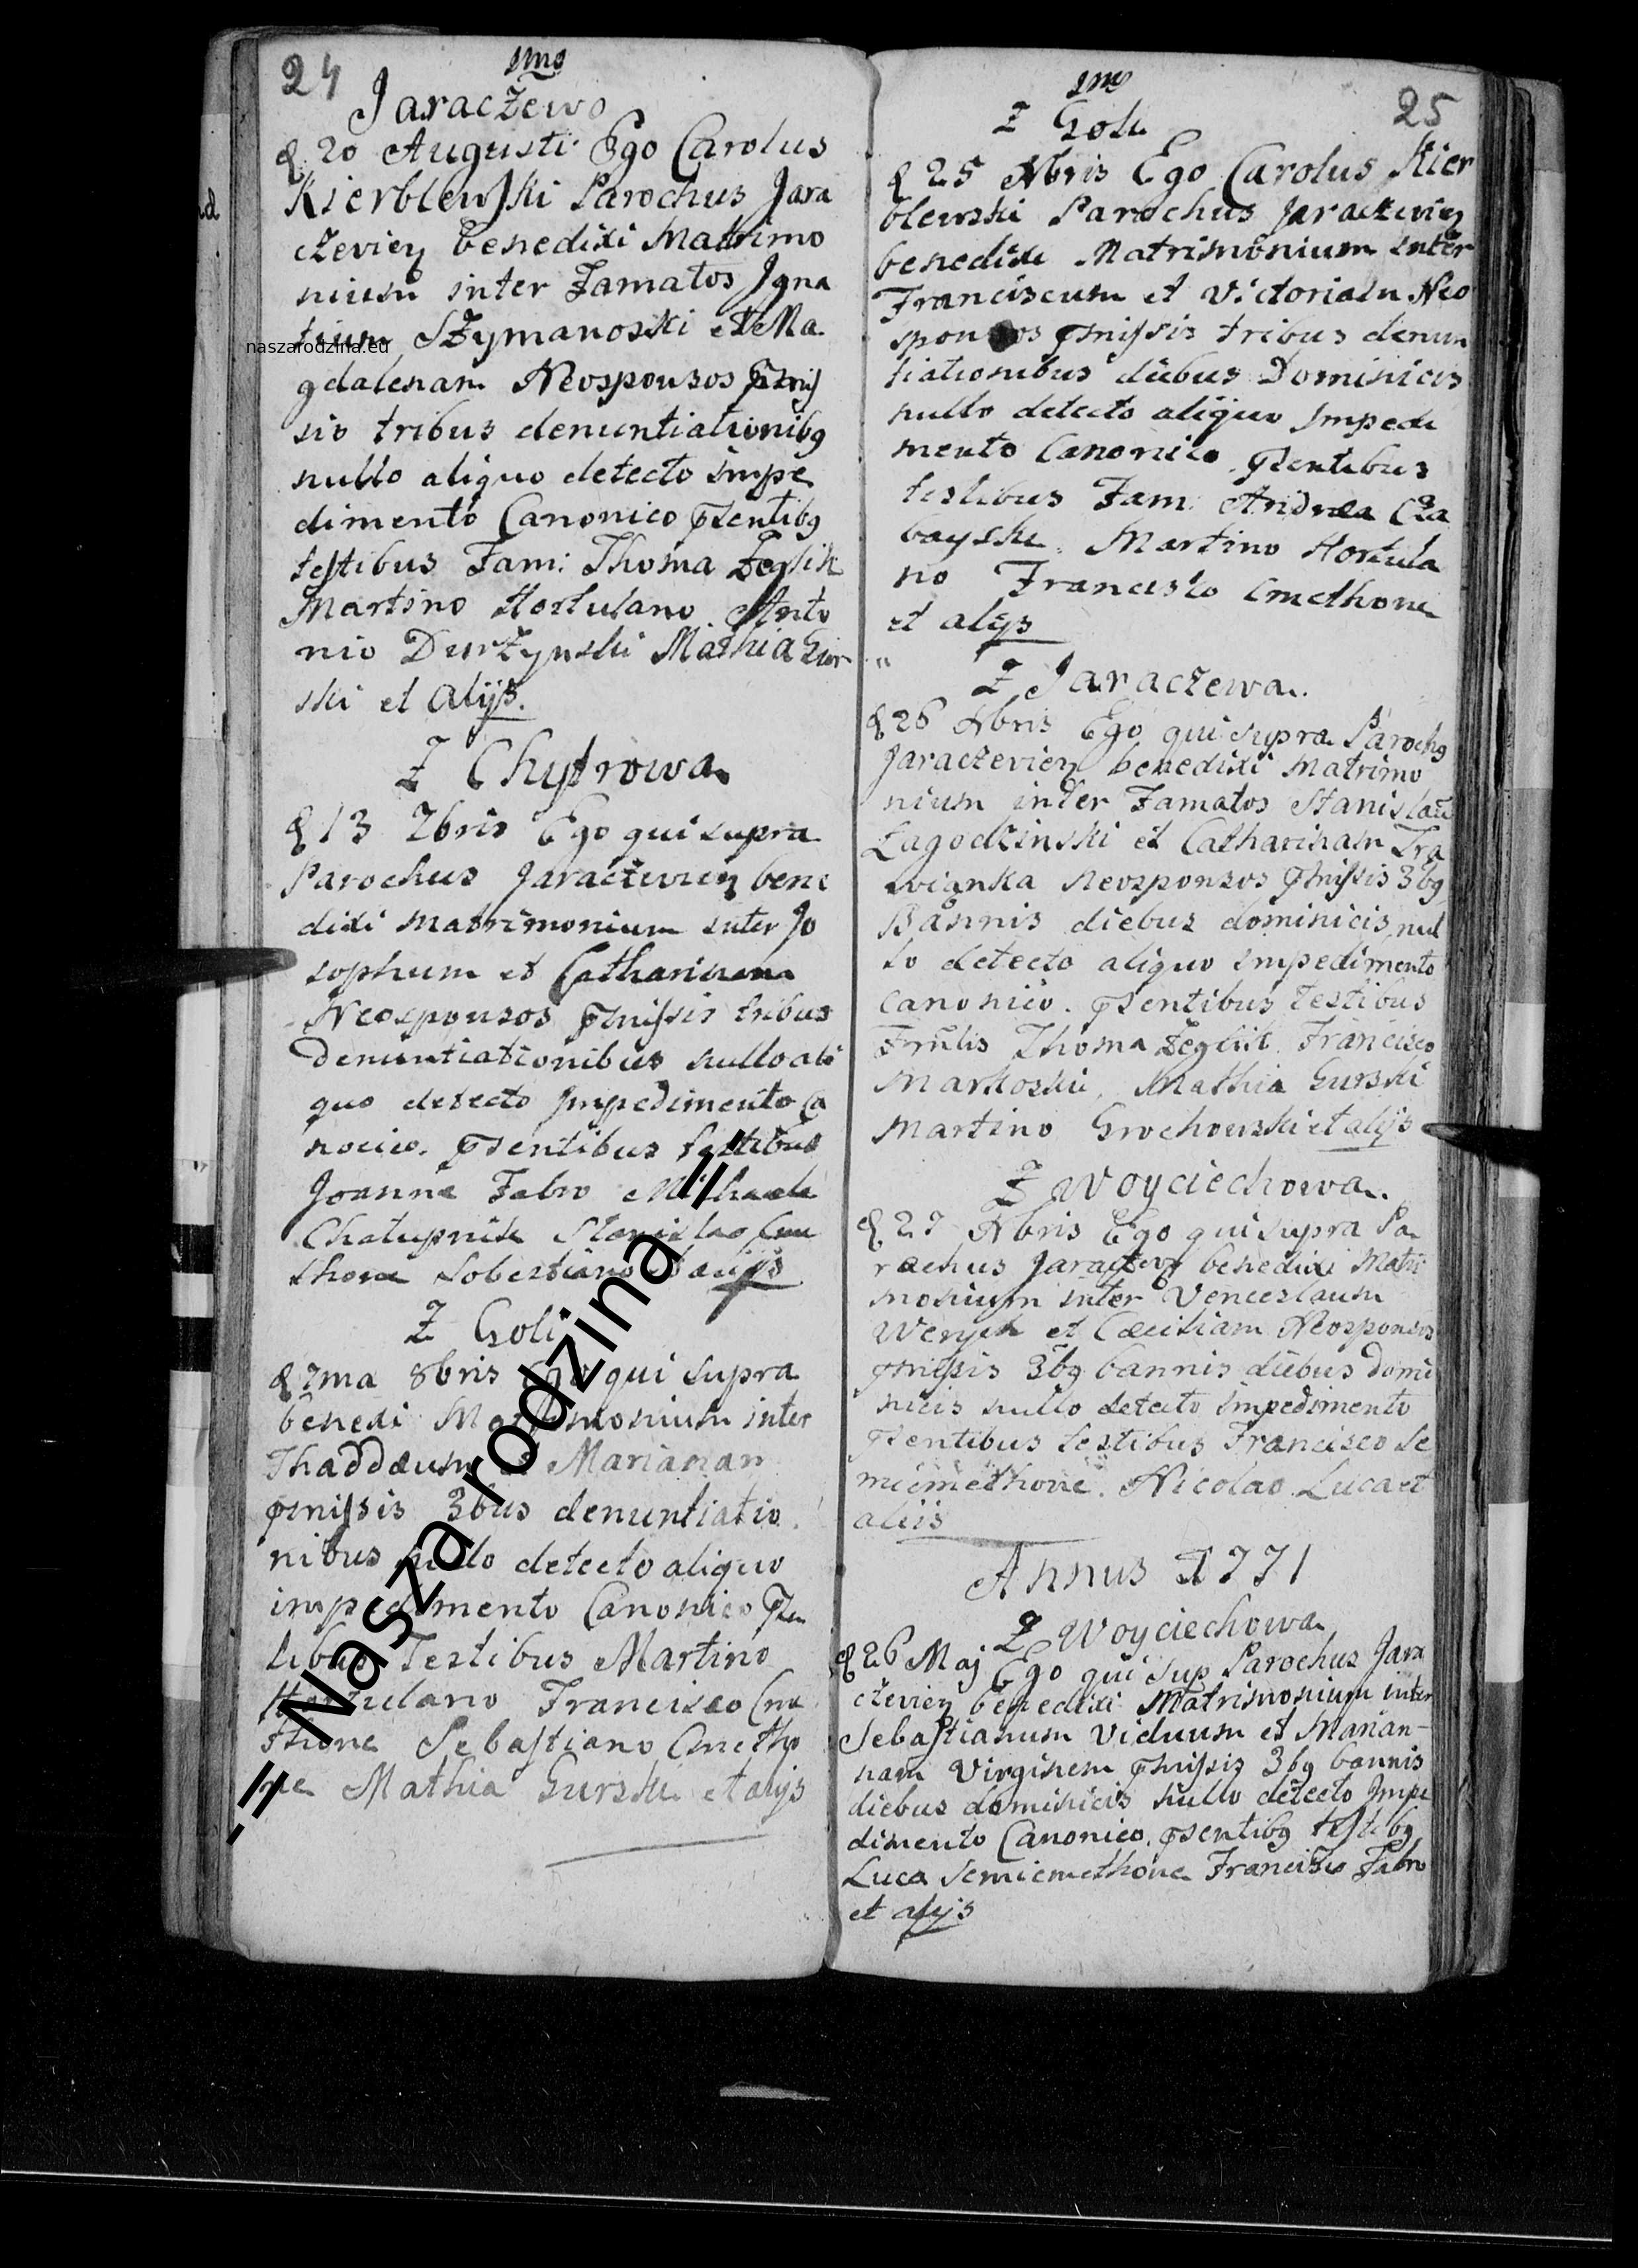 24
1mo
Jaraczewo
d. 20 Augusti Ego Carolus
Kierblewski Parochus Jara
czevien benedixi Matrimo
nium inter Famatos Igna
tium Szymanoski et Ma
gdalenam Neosponsos
sis tribus denuntiationibq
nullo aliquo detecto impe
dimento Canonico psentibq
testibus Fam: Thoma Zeglik
Martino Hortulano Anto
nio Durzynski Mathia Gur
ski et alijs.
Z Chytrowa
d 13 7bris Ego qui supra
Parochus Jaraczevien bene
dixi Matrimonium inter Jo
sophum et Catharinam
Neosponsos pmissis tribus
Denuntiationibus nullo ali
quo detecto Impedimento Ca
nocico. psentibus testibus
Joanne Fabro Michaele
Chalupnik Stanislao Cme
thone Sobestiano et alijs
Z Goli
d 7ma 8bris Ego qui supra
benexi Matrimonium inter
Thaddæum et Marianan
pmissis 3bus denuntiatio
nibus nullo detecto aliquo
impedimento Canonico psen
tibus Testibus Martino
Hortulano Francisco Cme
thone Sebastiano Cmetho
ne Mathia Gurski et alijs
1mo
25
Z Goli
d 25 Nbris Ego Carolus Kier
blewski Parochus Jaraczevien
benedixi Matrimonium inter
Franciscum et Victoriam Neo
sponsos pmissis tribus denun
tiationibus diebus Dominicis
nullo detecto aliquo Impedi
mento Canonico psentibus
testibus Fam: Andrea Cza
bayski. Martino Hortula
no Francisco Cmethone
et alijs
Z Jaraczewa.
d 26 Nbris Ego qui supra Parochq
Jaraczevien benedixi Matrimo
nium inter Famatos Stanislau
Lagodzinski et Catharinam Tra
wianka Neosponsos pmissis 3bq
Bannis diebus dominicis nul
lo detecto aliquo impedimento
canonico. psentibus testibus
Thoma Zeglik. Francisco
Markoski, Mathia Gurski
Martino Grochowski et alijs
Z Woyciechowa.
d 27 Nbris Ego qui supra Pa
rochus Jaraczevn benedixi Matri
monium inter Venceslaum
et Cæciliam Neosponsos
pmissis 3bq bannis diebus Domi
nicis nullo detecto impedimento
psentibus testibus Francisco Se
micmethone. Nicolao Luca et
aliis
Annus 1771
Z Woyciechowa
d 26 Maj Ego qui sup Parochus Jara
czevien benedixi Matrimonium inter
Sebastianum Viduum et Marian-
nam Virginem pmissis 3bq bannis
diebus dominicis nullo detecto Impe
dimento Canonico, psentibq testibq
Luca Semicmethone Francisco Fabro
et alijs
naszarodzina.eu
-= Nasza rodzina =